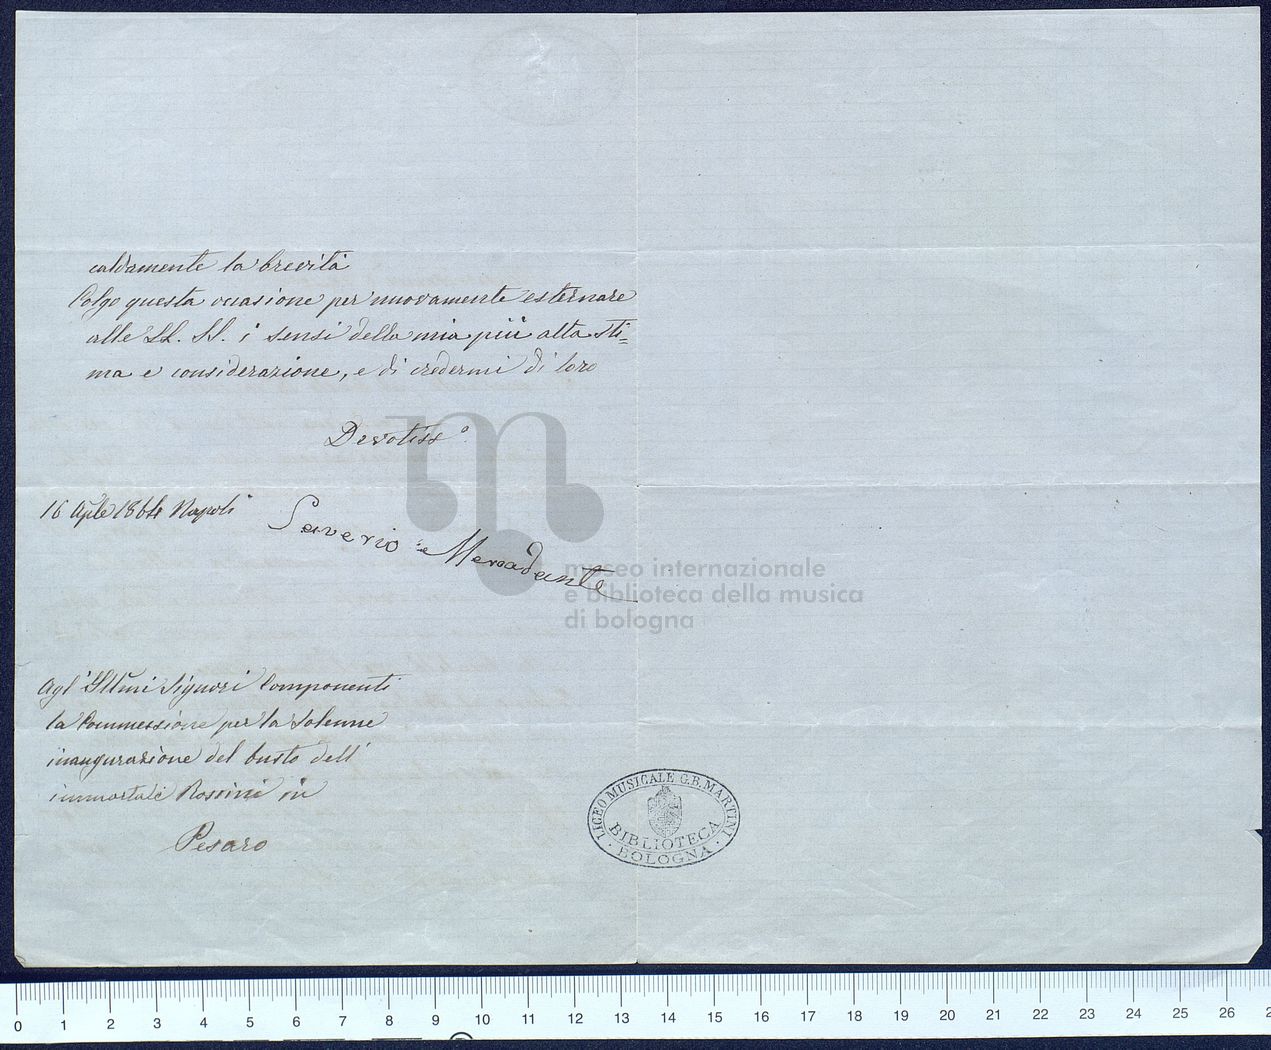 caldamente la brevità
Colgo questa occasione per nuovamente esternare
alle LL. SS. i sensi della mia più alta sti=
ma e considerazione, e di credermi di loro
Devotiss.o
16 Aple 1864 Napoli
Saverio Mercadante
museo internazionale
e biblioteca della musica
di bologna
Agl' Illmi Signori Componenti
la Commessione per la solenne
inaugurazione del busto dell'
immortale Rossini in
Pesaro
LICEO MUSICALE G.B. MARTINI
BIBLIOTECA
· BOLOGNA ·
0 1 2 3 4 5 6 7 8 9 10 11 12 13 14 15 16 17 18 19 20 21 22 23 24 25 26 2